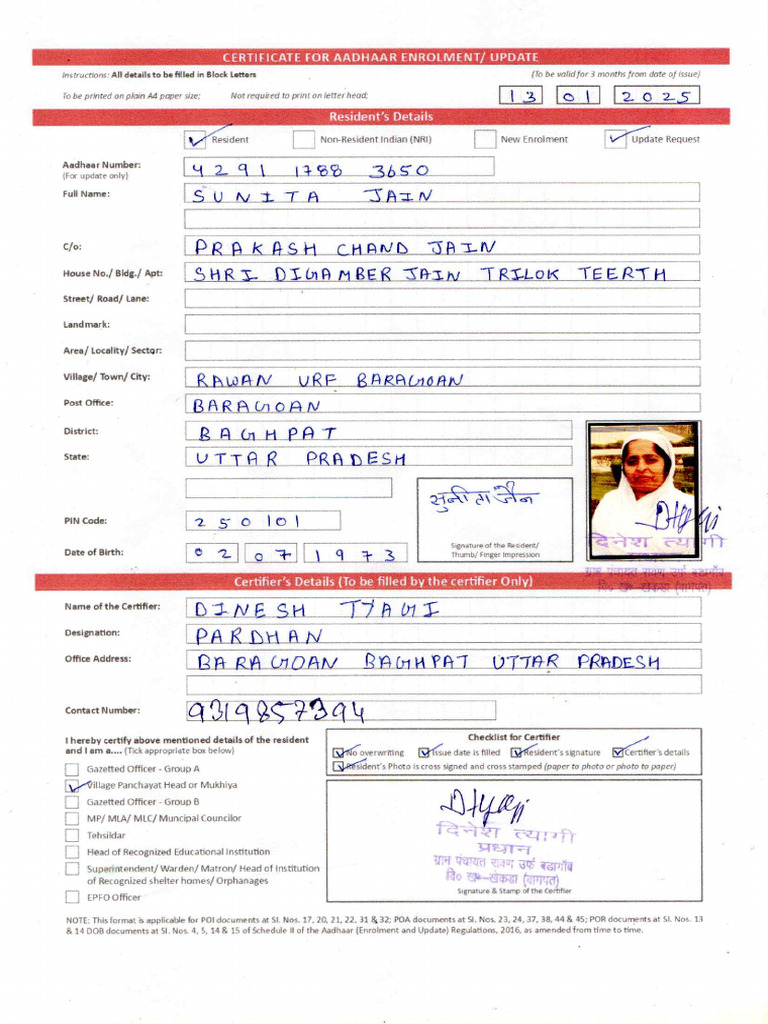 CERTIFICATE FOR AADHAAR ENROLMENT/ UPDATE
Instructions: All details to be filled in Block Letters (To be valid for 3 months from date of issue)
To be printed on plain A4 paper size; Not required to print on letter head; 13 01 2025
Resident's Details
Resident Non-Resident Indian (NRI) New Enrolment Update Request
Aadhaar Number: 4291 1788 3650
(For update only)
Full Name: SUNITA JAIN
C/o: PRAKASH CHAND JAIN
House No./ Bldg./ Apt: SHRI DIGAMBER JAIN TRILOK TEERTH
Street/ Road/ Lane:
Landmark:
Area/ Locality/ Sector:
Village/ Town/ City: RAWAN URF BARAGOAN
Post Office: BARAGOAN
District: BAGHPAT
State: UTTAR PRADESH
सुनीता जैन
PIN Code: 250101
Signature of the Resident/
Thumb/ Finger Impression
दिनेश त्यागी
प्रधान
ग्राम पंचायत रावण उर्फ बडागाँव
वि० ख०-खेकडा (बागपत)
Date of Birth: 02 07 1973
Certifier's Details (To be filled by the certifier Only)
Name of the Certifier: DINESH TYAGI
Designation: PARDHAN
Office Address: BARAGOAN BAGHPAT UTTAR PRADESH
Contact Number: 9319857394
I hereby certify above mentioned details of the resident
and I am a.... (Tick appropriate box below)
Checklist for Certifier
No overwriting Issue date is filled Resident's signature Certifier's details
Resident's Photo is cross signed and cross stamped (paper to photo or photo to paper)
Gazetted Officer - Group A
Village Panchayat Head or Mukhiya
Gazetted Officer - Group B
MP/ MLA/ MLC/ Muncipal Councilor
Tehsildar
Head of Recognized Educational Institution
Superintendent/ Warden/ Matron/ Head of Institution
of Recognized shelter homes/ Orphanages
EPFO Officer
दिनेश त्यागी
प्रधान
ग्राम पंचायत रावण उर्फ बडागाँव
वि० ख०-खेकडा (बागपत)
Signature & Stamp of the Certifier
NOTE: This format is applicable for POI documents at SI. Nos. 17, 20, 21, 22, 31 & 32; POA documents at SI. Nos. 23, 24, 37, 38, 44 & 45; POR documents at SI. Nos. 13
& 14 DOB documents at SI. Nos. 4, 5, 14 & 15 of Schedule II of the Aadhaar (Enrolment and Update) Regulations, 2016, as amended from time to time.